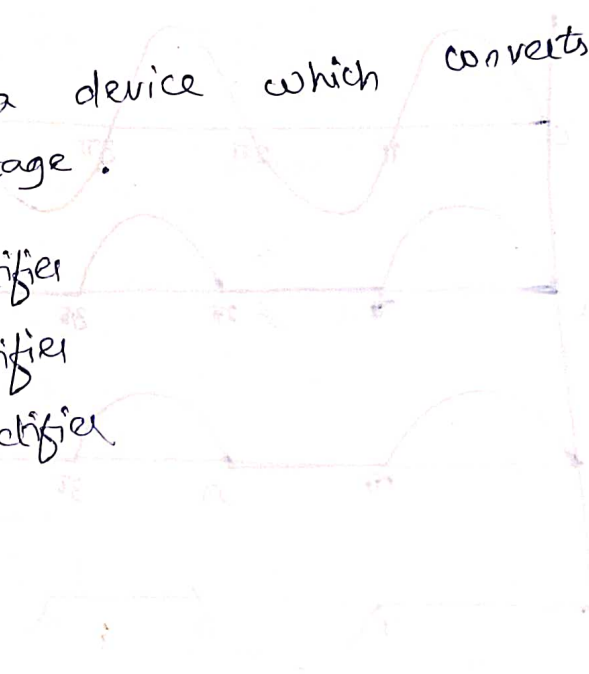 a device which converts
age.
ifier
ifier
ctifier